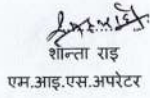 शान्ता राइ
एम.आइ.एस.अपरेटर